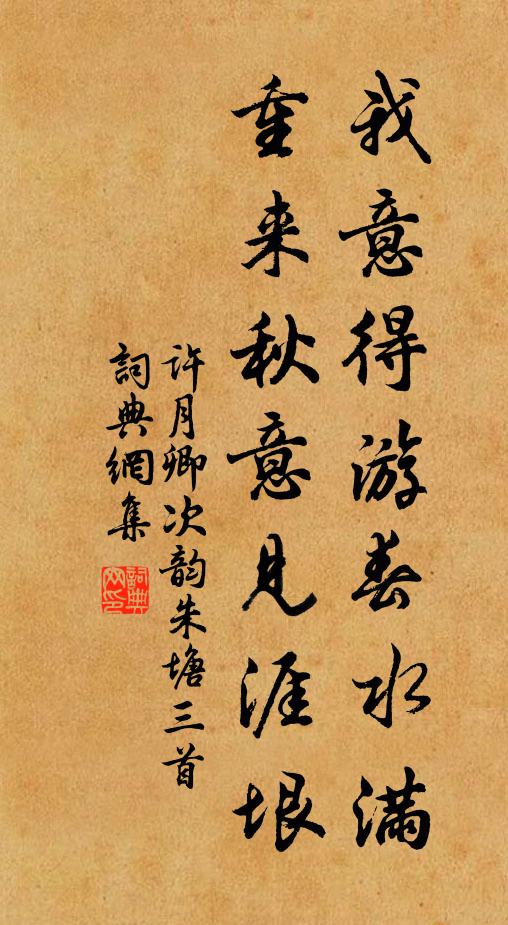 我意得游春水满
重来秋意见涯垠
许月卿次韵朱塘三首
詞典網集
詞典网印